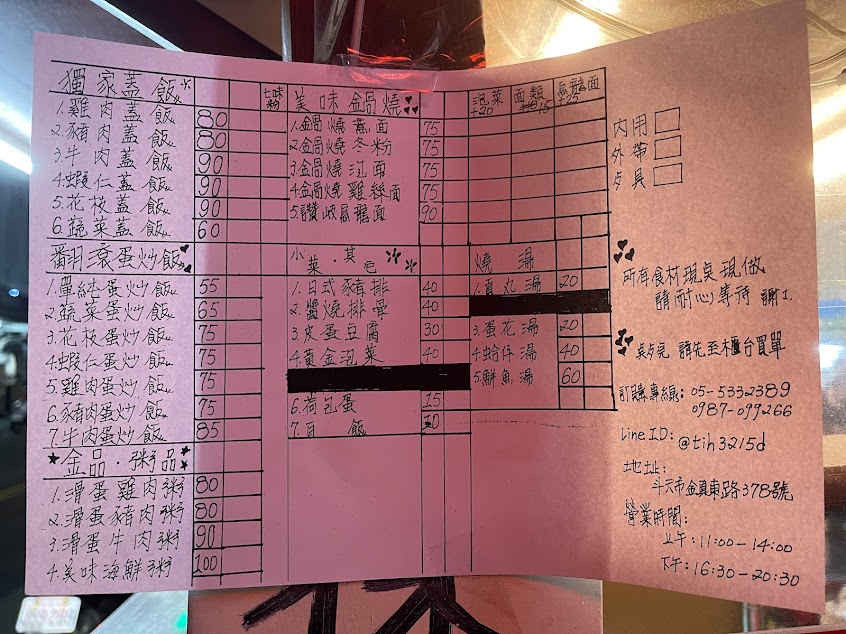 獨家蓋飯 七味粉
1.雞肉蓋飯 80
2.豬肉蓋飯 80
3.牛肉蓋飯 90
4.蝦仁蓋飯 90
5.花枝蓋飯 90
6.蔬菜蓋飯 60
翻滾蛋炒飯
1.單純蛋炒飯 55
2.蔬菜蛋炒飯 65
3.花枝蛋炒飯 75
4.蝦仁蛋炒飯 75
5.雞肉蛋炒飯 75
6.豬肉蛋炒飯 75
7.牛肉蛋炒飯 85
金品·粥品
1.滑蛋雞肉粥 80
2.滑蛋豬肉粥 80
3.滑蛋牛肉粥 90
4.美味海鮮粥 100
美味鍋燒 泡菜+20 面類+15 烏龍面+25
1.鍋燒意面 75
2.鍋燒冬粉 75
3.鍋燒泡面 75
4.鍋燒雞絲面 75
5.讚岐烏龍面 90
小菜·其它
1.日式豬排 40
2.醬燒排骨 40
3.皮蛋豆腐 30
4.黃金泡菜 40
6.荷包蛋 15
7.白飯 10
燒湯
1.貢丸湯 20
3.蛋花湯 20
4.蛤仔湯 40
5.鮮魚湯 60
內用
外帶
歺具
所有食材現桌現做
請耐心等待 謝!.
點歺完 請先至櫃台買單
訂購專線: 05-5332389
0987-099266
Line ID: @tih3215d
地址:
斗六市金真東路378號
營業時間:
上午: 11:00-14:00
下午: 16:30-20:30